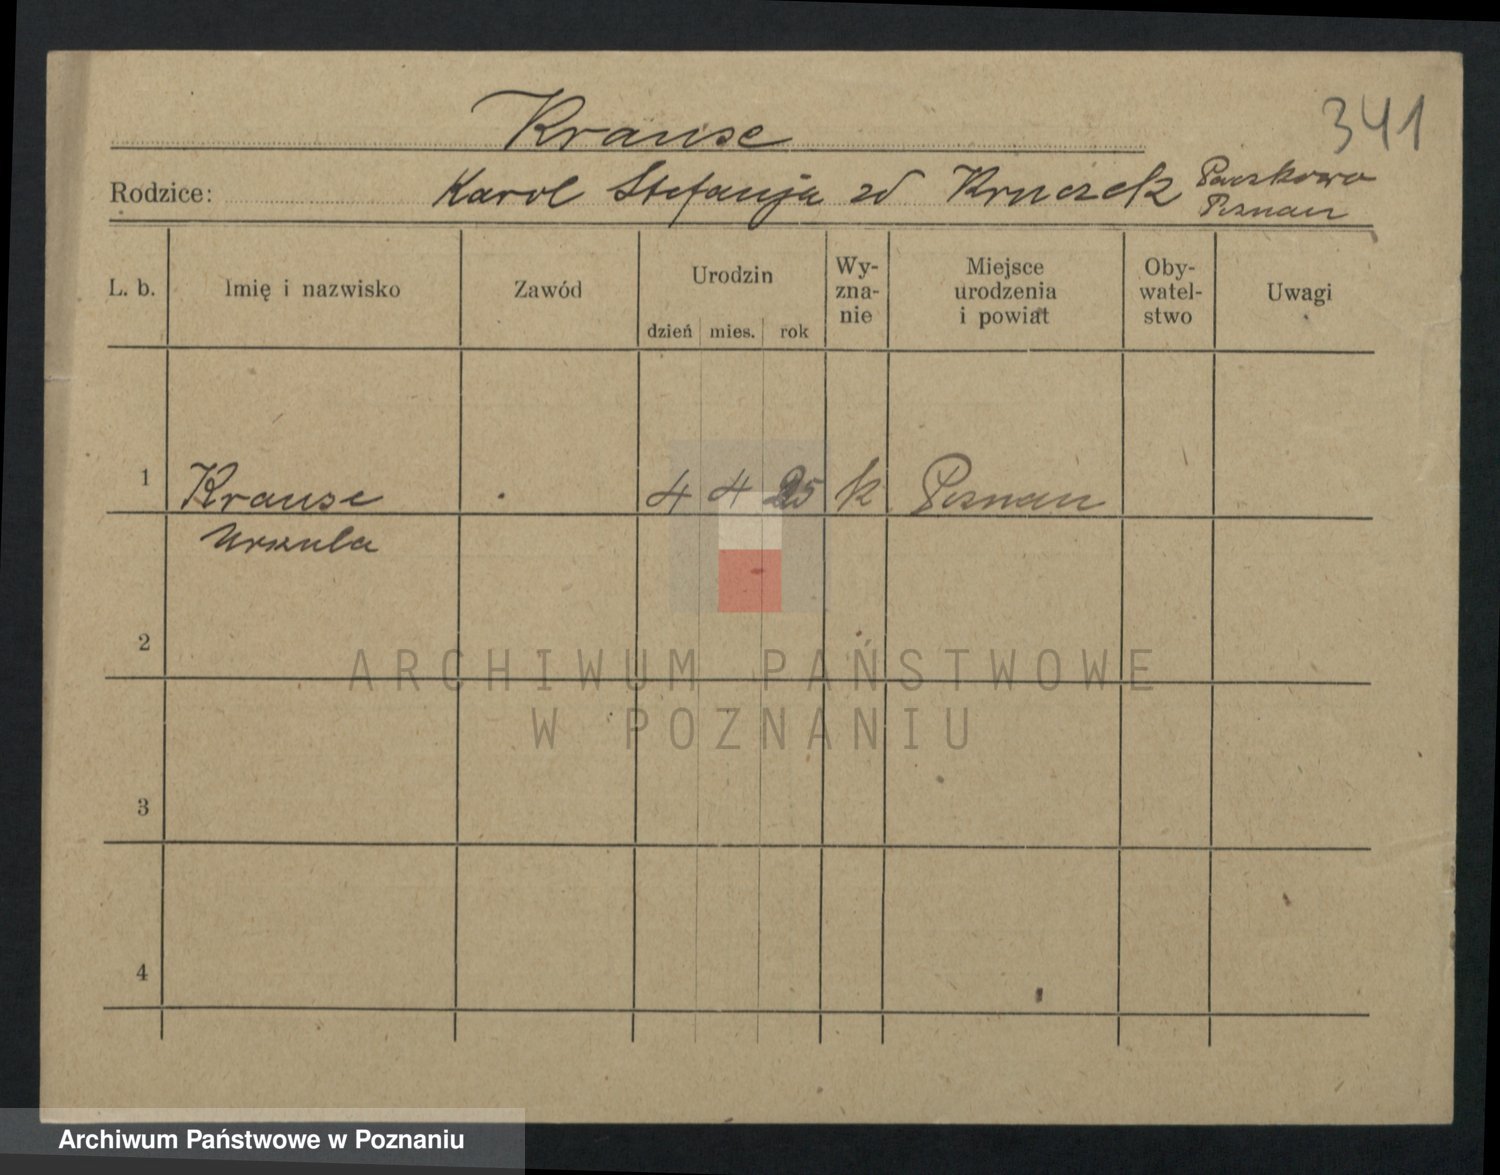 341
Krause
Rodzice: Karol Stefanja zd Kruczek Paczkowo
Poznań
L. b. Imię i nazwisko Zawód Urodzin dzień mies. rok Wy-
zna-
nie Miejsce
urodzenia
i powiat Oby-
watel-
stwo Uwagi
1 Krause 4 4 25 k Poznan
Urszula
2
ARCHIWUM PAŃSTWOWE
W POZNANIU
3
4
Archiwum Państwowe w Poznaniu